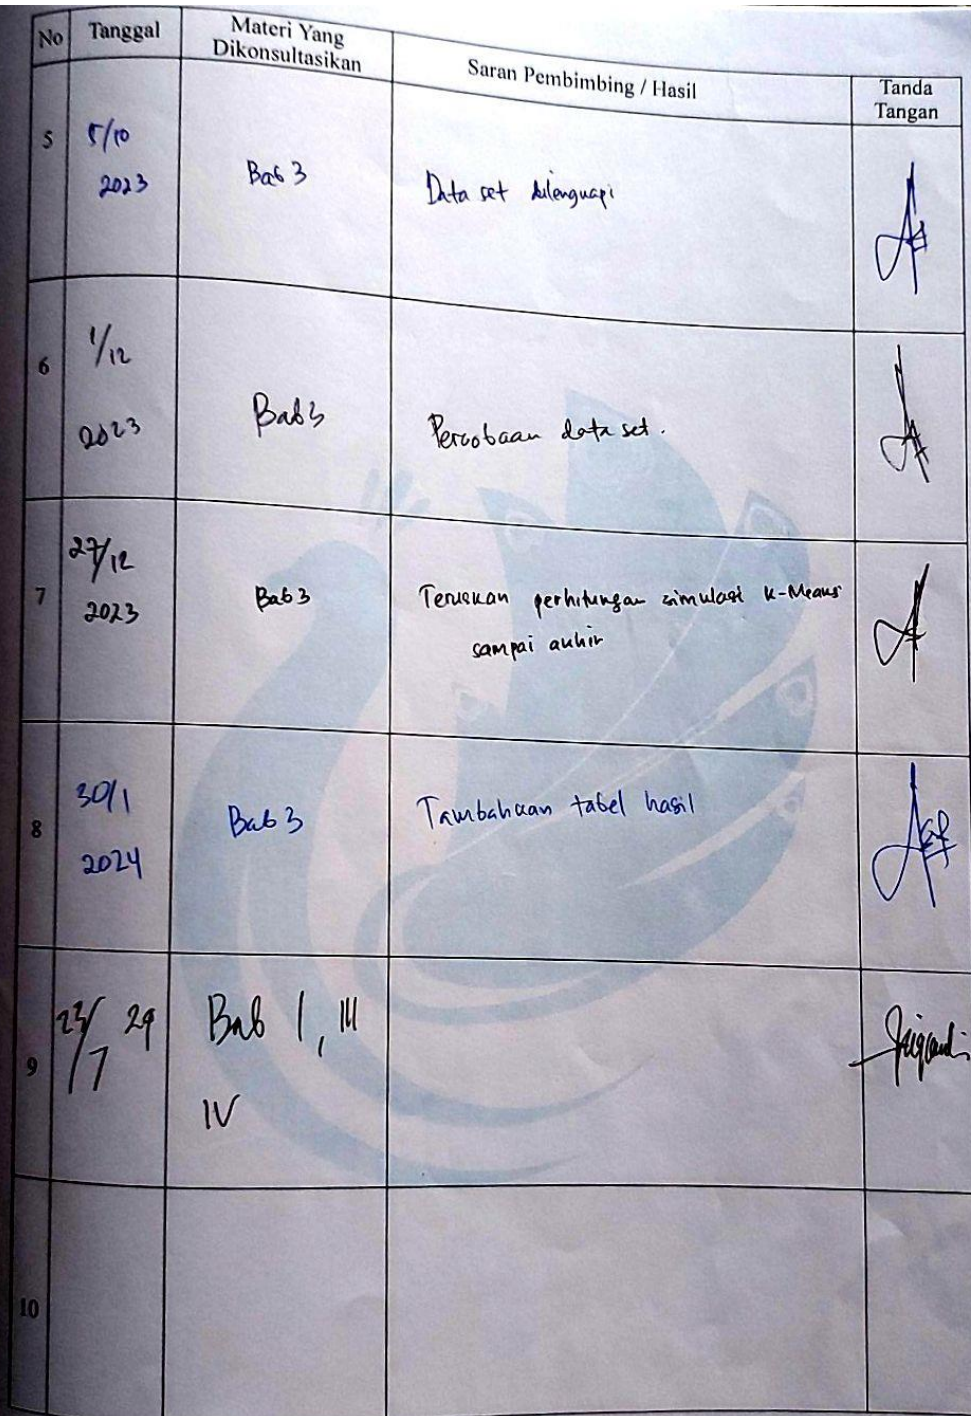 No Tanggal Materi Yang Dikonsultasikan Saran Pembimbing / Hasil Tanda Tangan
5 5/10 2023 Bab 3 Data set dilengkapi
6 1/12 2023 Bab 3 Percobaan data set.
7 27/12 2023 Bab 3 Teruskan perhitungan simulasi K-Means
sampai akhir
8 30/1 2024 Bab 3 Tambahkan tabel hasil
9 23/7 24 Bab I, III
IV
10